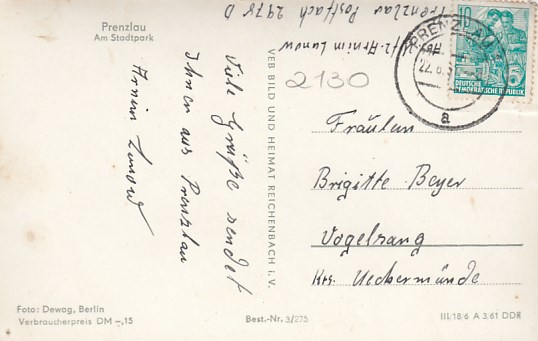 Prenzlau
Am Stadtpark
Viele Grüße sendet
Ihnen aus Prenzlau
Armin Lunow
Prenzlau Postfach 2478 D
Armin Lunow
VEB BILD UND HEIMAT REICHENBACH I. V.
2130
PRENZLAU
22.6.
a
10
DEUTSCHE
DEMOKRATISCHE REPUBLIK
Fräulein
Brigitte Beyer
Vogelsang
Krs. Ueckermünde
Foto: Dewag, Berlin
Verbraucherpreis DM –,15
Best.-Nr. 3/275
III/18/6 A 3/61 DDR